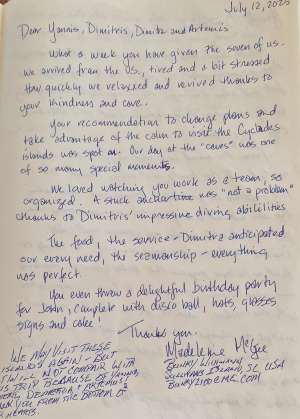 July 12, 2025
Dear Yannis, Dimitris, Dimitra and Artemis
What a week you have given the seven of us.
We arrived from the US, tired and a bit stressed
How quickly we relaxed and revived thanks to
your kindness and care.
Your recommendation to change plans and
take advantage of the calm to visit the Cyclades
islands was spot on. Our day at the "caves" was one
of so many special moments.
We loved watching you work as a team, so
organized. A stuck anchor was "not a problem"
thanks to Dimitris' impressive diving abilities
The food, the service - Dimitra anticipated
our every need, the seamanship - everything
was perfect.
You even threw a delightful birthday party
for John, complete with disco ball, hats, glasses
signs and cake!
Thank you
Madeleine McGee
WE MAY VISIT THESE
ISLANDS AGAIN - BUT
IT WILL NOT COMPARE WITH
THIS TRIP BECAUSE OF YANNIS,
ARTEMIS
THANK YOU FROM THE BOTTOM OF
HEARTS.